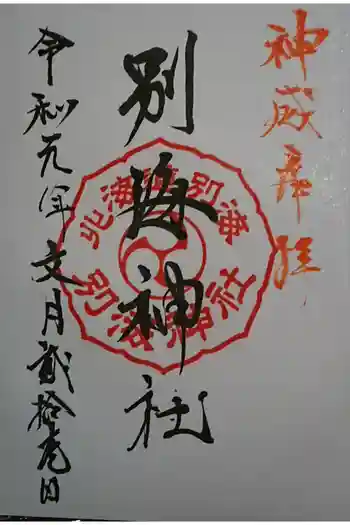 神威奉拝
別海神社
令和元年文月貳拾壱日
北海道別海
別海神社